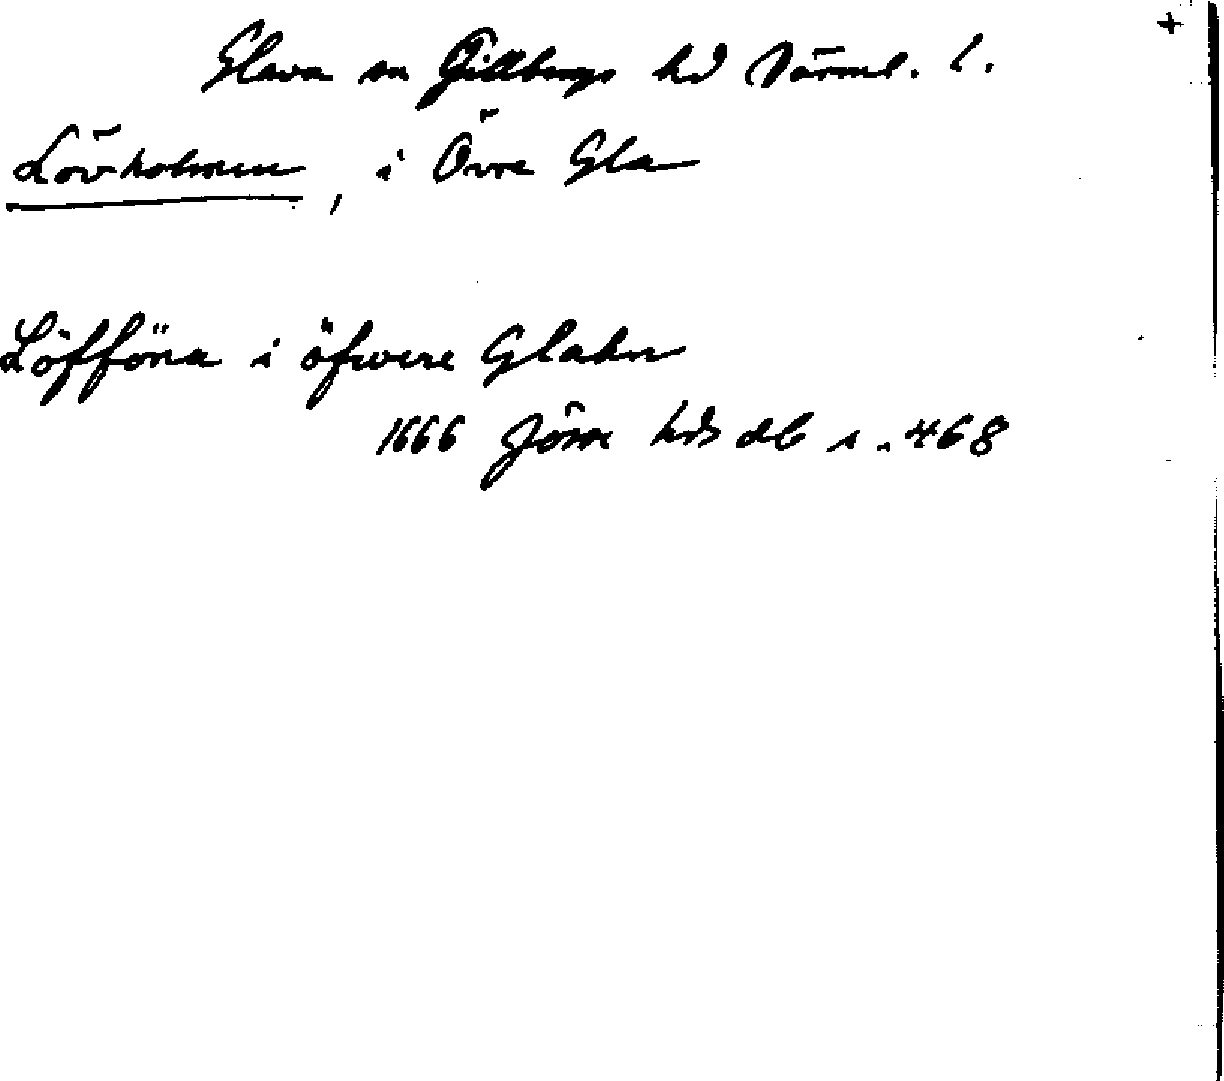 +
Glava sn Gillbergs hd Värml. l.
Lövholmen, i Övre Gla
Löfföna i öfwere Glahn
1666 Jösse hds db s. 468